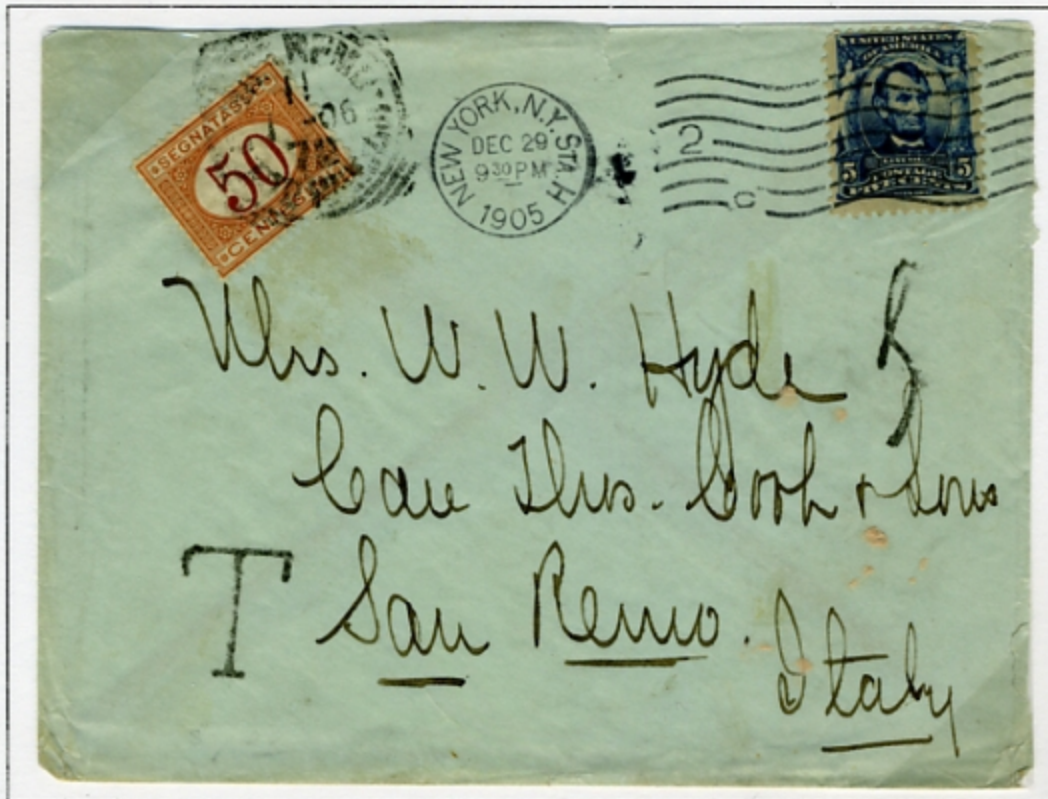 SEGNATASSE
50
CENT
06
NEW YORK, N.Y. STA. H
DEC 29
9 30 PM
1905
2
C
UNITED STATES
OF AMERICA
5 5
POSTAGE
Mrs. W. W. Hyde
5
Care Thos. Cook & Sons
T
San Remo.
Italy